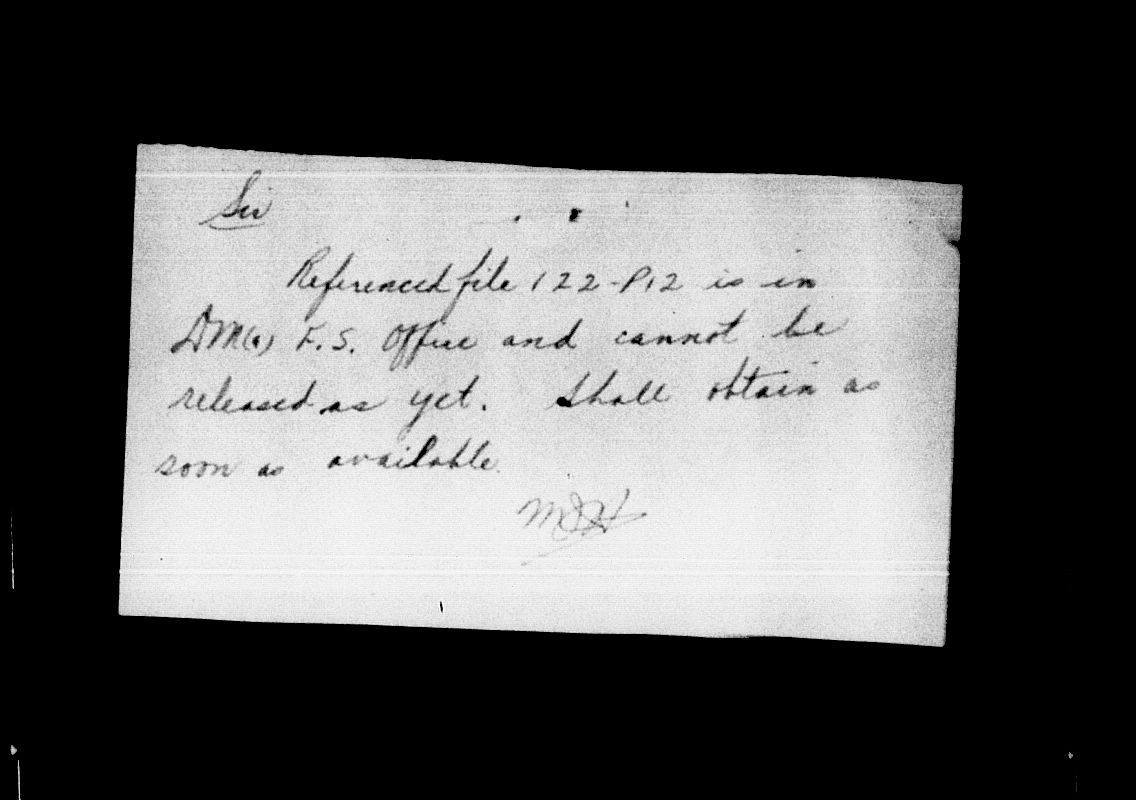 Sir
Referenced file 122-P12 is in
DM(a) F.S. Office and cannot be
released as yet. Shall obtain as
soon as available.